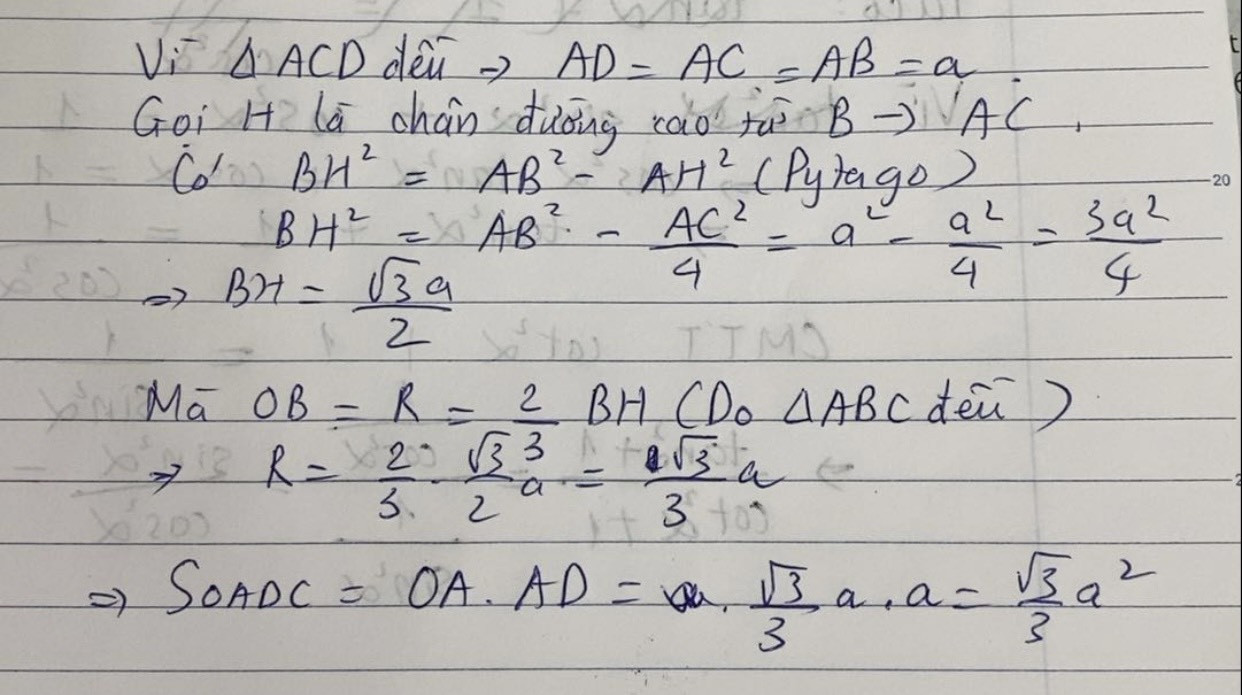 Vì Δ ACD đều → AD = AC = AB = a.
Gọi H là chân đường cao từ B → AC.
Có BH² = AB² - AH² (Pytago)
BH² = AB² - AC²/4 = a² - a²/4 = 3a²/4
⇒ BH = √3a/2
Mà OB = R = 2/3 BH (Do ΔABC đều)
⇒ R = 2/3 . √3/2 a = √3/3 a
⇒ SOADC = OA. AD = √3/3 a . a = √3/3 a²
20